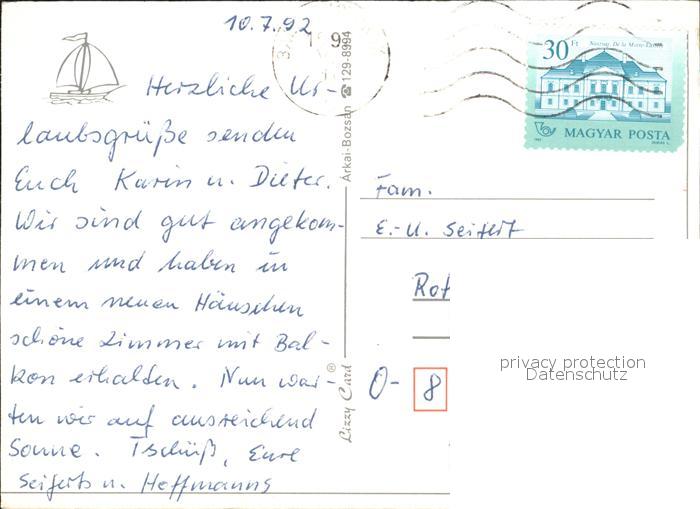 10.7.92
Herzliche Ur-
laubsgrüße senden
Euch Karin u. Dieter.
Wir sind gut angekom-
men und haben in
einem neuen Häuschen
schöne Zimmer mit Bal-
kon erhalten. Nun war-
ten wir auf ausreichend
Sonne. Tschüß, Eure
Seiferts u. Hoffmanns
Lizzy Card®
Árkai-Bozsán ☎ 129-8994
30 Ft
MAGYAR POSTA
Fam.
E.-U. Seifert
Rot
O- 8
privacy protection
Datenschutz